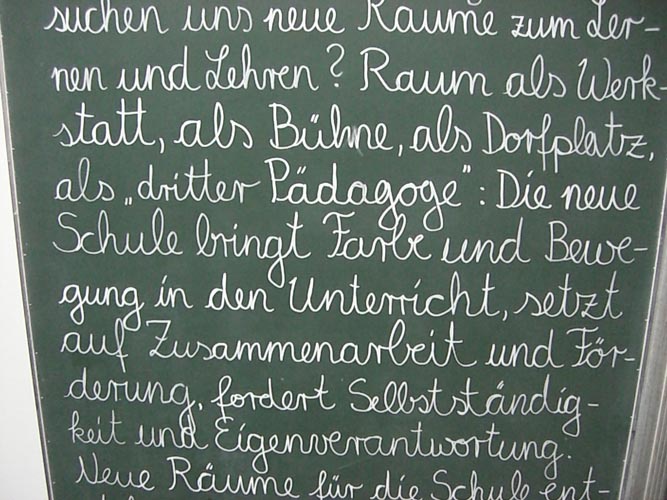 suchen uns neue Räume zum Ler-
nen und Lehren? Raum als Werk-
statt, als Bühne, als Dorfplatz,
als „dritter Pädagoge": Die neue
Schule bringt Farbe und Bewe-
gung in den Unterricht, setzt
auf Zusammenarbeit und För-
derung, fordert Selbstständig-
keit und Eigenverantwortung.
Neue Räume für die Schule ent-